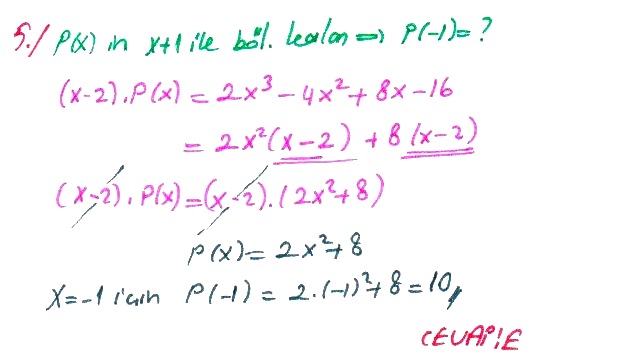 5./ P(x) in x+1 ile böl. kalan => P(-1)= ?
(x-2).P(x) = 2x³ - 4x² + 8x - 16
= 2x²(x-2) + 8(x-2)
(x-2).P(x) = (x-2).(2x²+8)
P(x) = 2x²+8
x=-1 için P(-1) = 2.(-1)²+8 = 10,
CEVAP:E